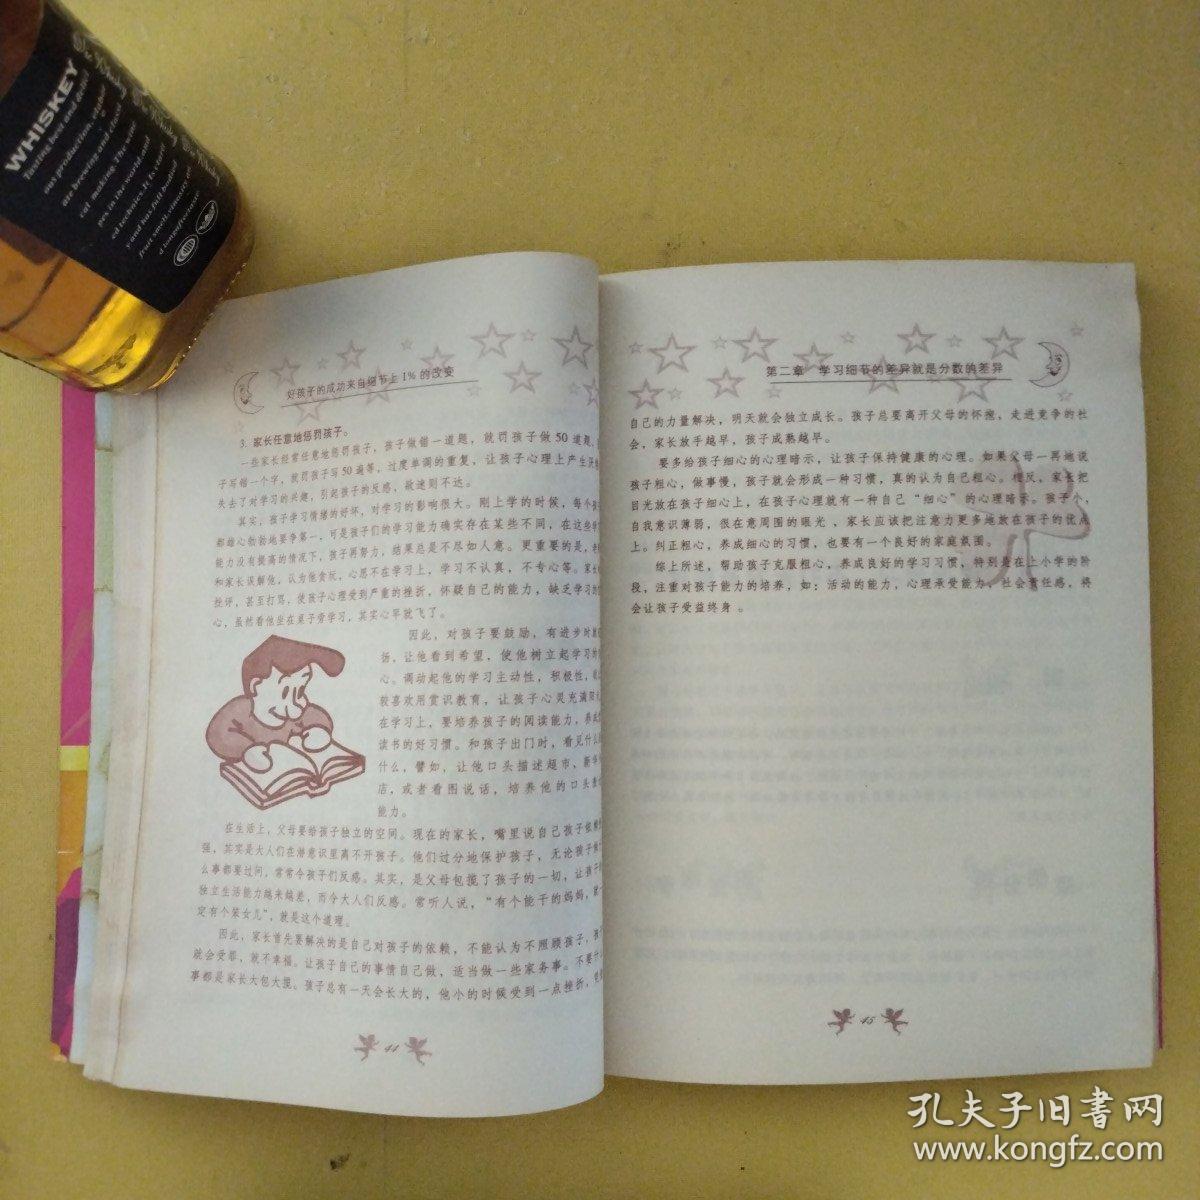 WHISKEY
Tasting best and debit
ous production, elabor
ate brewing and classi
cal making. The wine
pes in the world.and
ed technics.It Is clarel
y and has full-bodied
fruit smell.vinosity an
d longafterclause
好孩子的成功来自细节上1%的改变
3. 家长任意地惩罚孩子。
一些家长经常任意地惩罚孩子，孩子做错一道题，就罚孩子做50道题，
子写错一个字，就罚孩子写50遍等，过度单调的重复，让孩子心理上产生厌
失去了对学习的兴趣，引起孩子的反感，欲速则不达。
其实，孩子学习情绪的好坏，对学习的影响很大。刚上学的时候，每个孩
都雄心勃勃地要争第一，可是孩子们的学习能力确实存在某些不同，在这些学
能力没有提高的情况下，孩子再努力，结果总是不尽如人意。更重要的是，老
和家长误解他，认为他贪玩，心思不在学习上，学习不认真，不专心等。家长
批评，甚至打骂，使孩子心理受到严重的挫折，怀疑自己的能力，缺乏学习的
心，虽然看他坐在桌子旁学习，其实心早就飞了。
因此，对孩子要鼓励，有进步时就
扬，让他看到希望，使他树立起学习的
心。调动起他的学习主动性，积极性，
较喜欢用赏识教育，让孩子心灵充满阳
在学习上，要培养孩子的阅读能力，养成
读书的好习惯。和孩子出门时，看见什么
什么，譬如，让他口头描述超市，新华
店，或者看图说话，培养他的口头表
能力。
在生活上，父母要给孩子独立的空间。现在的家长，嘴里说自己孩子依赖
强，其实是大人们在潜意识里离不开孩子。他们过分地保护孩子，无论孩子做
么事都要过问，常常令孩子们反感。其实，是父母包揽了孩子的一切，让孩子
独立生活能力越来越差，而令大人们反感。常听人说，“有个能干的妈妈，就
定有个笨女儿”，就是这个道理。
因此，家长首先要解决的是自己对孩子的依赖，不能认为不照顾孩子，孩
就会受罪，就不幸福。让孩子自己的事情自己做，适当做一些家务事。不要什
事都是家长大包大揽。孩子总有一天会长大的，他小的时候受到一点挫折，
44
第二章 学习细节的差异就是分数的差异
自己的力量解决，明天就会独立成长。孩子总要离开父母的怀抱，走进竞争的社
会，家长放手越早，孩子成熟越早。
要多给孩子细心的心理暗示，让孩子保持健康的心理。如果父母一再地说
孩子粗心，做事慢，孩子就会形成一种习惯，真的认为自己粗心。相反，家长把
目光放在孩子细心上，在孩子心理就有一种自己“细心”的心理暗示。孩子小，
自我意识薄弱，很在意周围的眼光，家长应该把注意力更多地放在孩子的优点
上。纠正粗心，养成细心的习惯，也要有一个良好的家庭氛围。
综上所述，帮助孩子克服粗心，养成良好的学习习惯，特别是在上小学的阶
段，注重对孩子能力的培养，如：活动的能力，心理承受能力，社会责任感，将
会让孩子受益终身。
45
孔夫子旧書网
www.kongfz.com